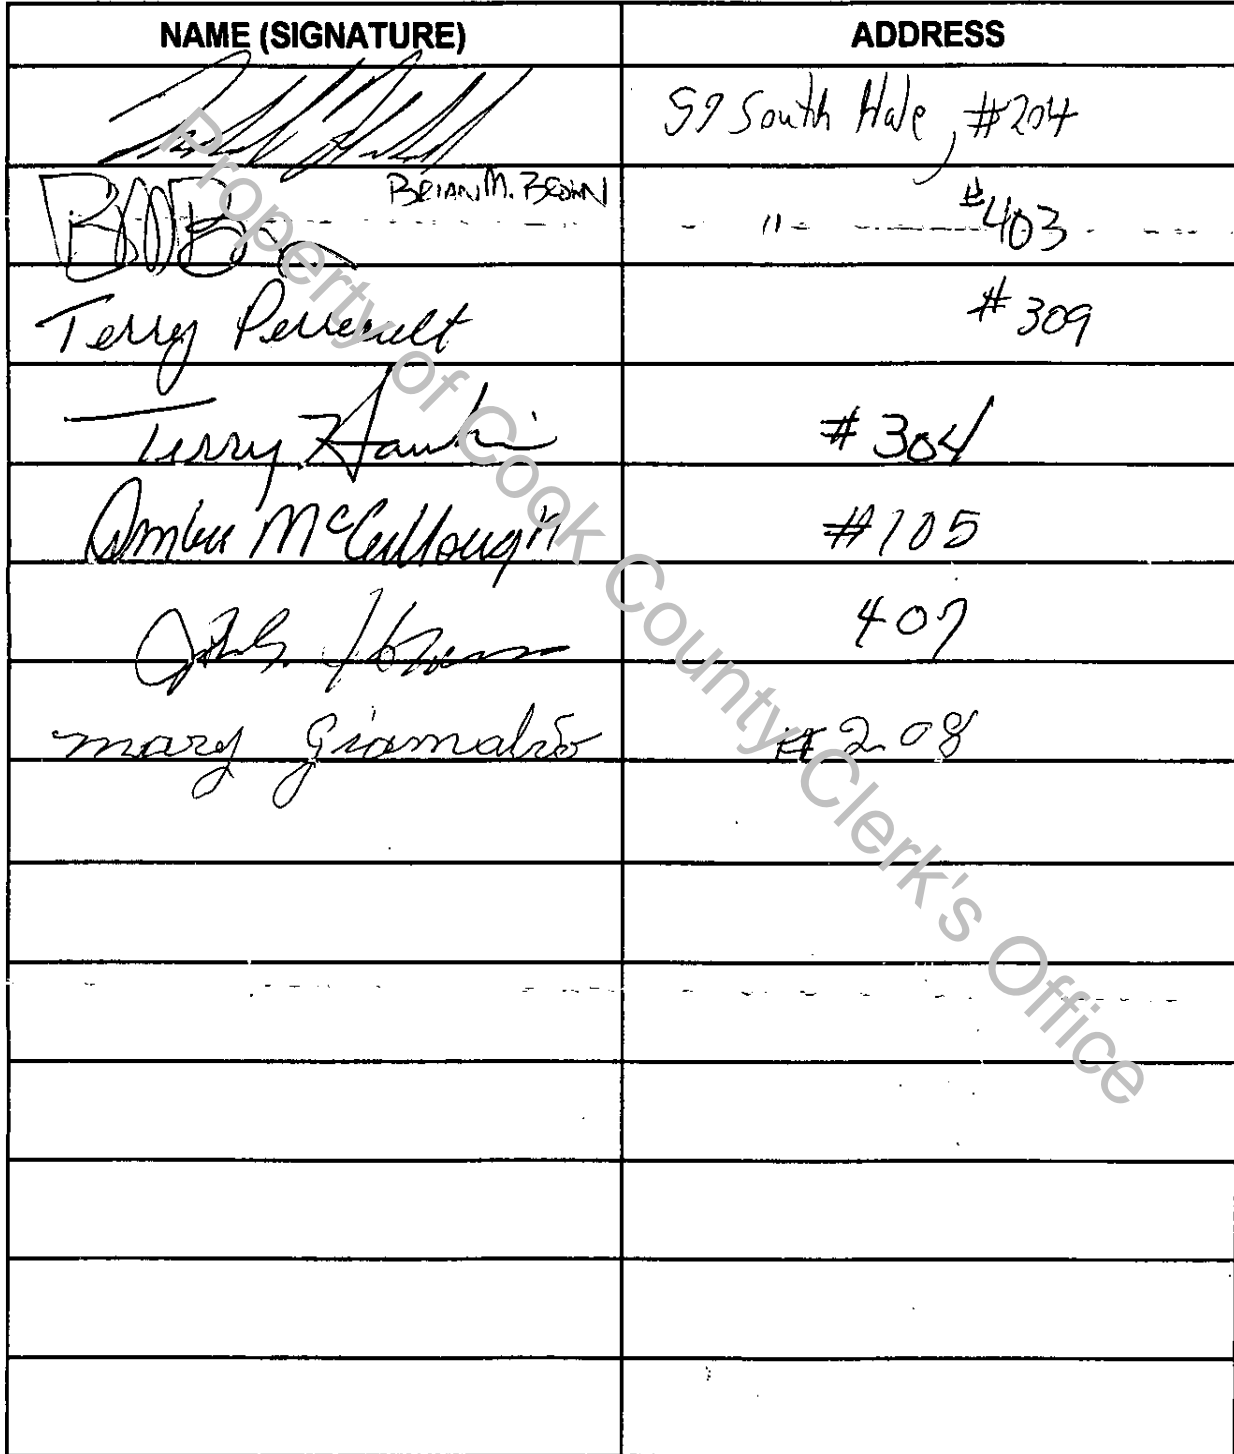 NAME (SIGNATURE) ADDRESS
59 South Hale, #204
BRIAN M. BROWN " #403
Terry Perreault #309
Terry Hawkin #304
Amber McCullough #105
407
mary Giamalvo #208
Property of Cook County Clerk's Office